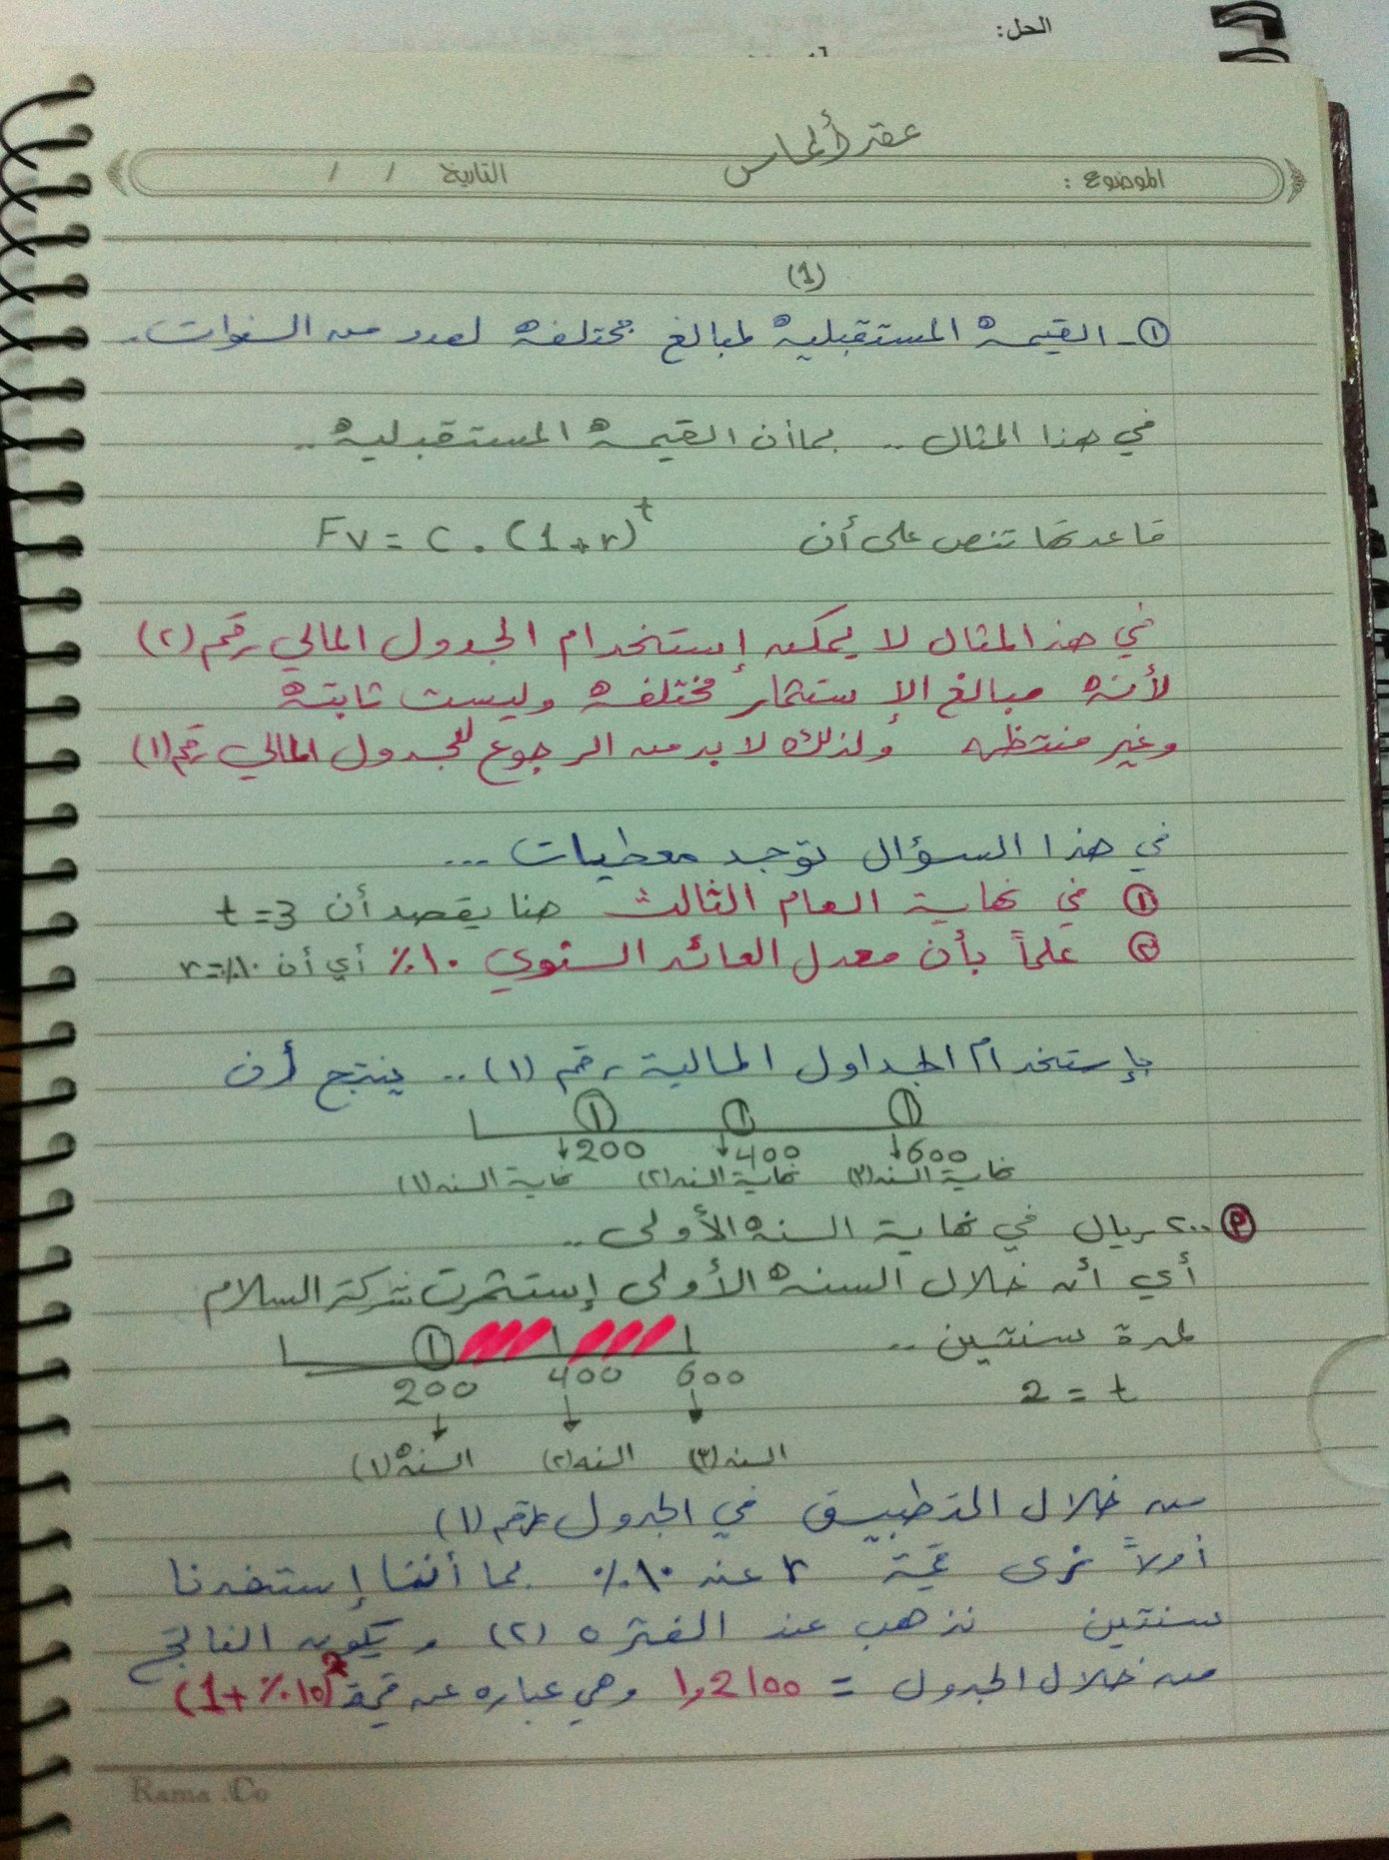 الحل:
عقد ألماس
الموضوع :
التاريخ / /
(1)
①- القيمه المستقبليه لمبالغ مختلفه لعدد من السنوات.
في هذا المثال .. بما أن القيمه المستقبليه ..
قاعدتها تنص على أن Fv = C . (1+r)^t
في هذا المثال لا يمكن إستخدام الجدول المالي رقم (٢)
لأنه مبالغ الإستثمار مختلفه وليست ثابتة
وغير منتظمه ولذلك لابد من الرجوع للجدول المالي رقم (١)
في هذا السؤال توجد معطيات ...
① في نهاية العام الثالث هنا يقصد أن t = 3
② علماً بأن معدل العائد السنوي ١٠٪ أي أن r = ٪١٠
بإستخدام الجداول المالية رقم (١) .. ينتج أن
① ① ①
↓200 ↓400 ↓600
نهاية السنه (١) نهاية السنه (٢) نهاية السنه (٣)
٢٠٠ ريال في نهاية السنه الأولى ..
أي أنه خلال السنه الأولى إستثمرت شركة السلام
لمدة سنتين ..
①
200 400 600
2 = t
السنه (١) السنه (٢) السنه (٣)
من خلال التطبيق في الجدول رقم (١)
أولاً نرى قيمة r عند ١٠٪ بما أننا إستخدمنا
سنتين نذهب عند الفتره (٢) ويكون الناتج
من خلال الجدول = 1,2100 وهي عباره عن قيمة (1+٪10)^2
Rama .Co